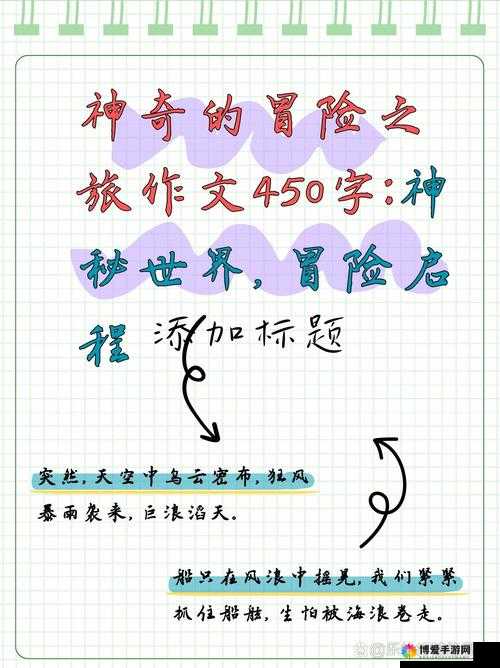 神奇的冒险之
旅作文450字:神
秘世界,冒险启
程 添加标题
突然,天空中乌云密布,狂风
暴雨袭来,巨浪滔天。
船只在风浪中摇晃,我们紧紧
抓住船舷,生怕被海浪卷走。
博爱手游网